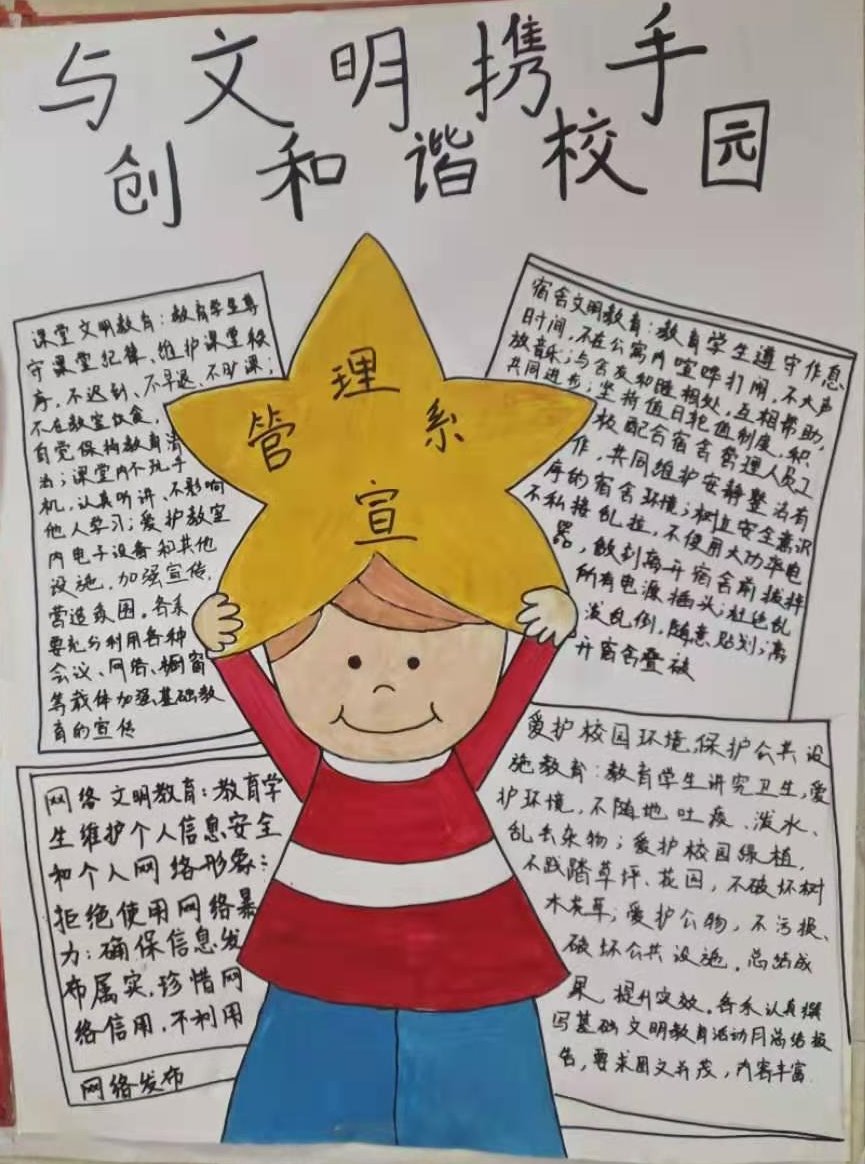 与文明携手
创和谐校园
管理系
宣
课堂文明教育：教育学生尊
守课堂纪律、维护课堂秩
序，不迟到、不早退、不旷课；
不在教室饮食，
自觉保持教育清
洁；课堂内不玩手
机，认真听讲、不影响
他人学习；爱护教室
内电子设备和其他
设施。加强宣传，
营造氛围。各系
要充分利用各种
会议、网络、橱窗
等载体加强基础教
育的宣传
宿舍文明教育：教育学生遵守作息
时间，不在公寓内喧哗打闹，不大声
放音乐；与舍友和睦相处，互相帮助，
共同进步；坚持值日轮值制度，积
极配合宿舍管理人员工
作，共同维护安静整洁有
序的宿舍环境；树立安全意识
不私接乱拉，不使用大功率电
器，做到离开宿舍前拔掉
所有电源插头；杜绝乱
泼乱倒，随意贴划；离
开宿舍叠被
网络文明教育：教育学
生维护个人信息安全
和个人网络形象；
拒绝使用网络暴
力；确保信息发
布属实，珍惜网
络信用，不利用
网络发布
爱护校园环境，保护公共设
施教育：教育学生讲究卫生，爱
护环境，不随地吐痰、泼水、
乱丢杂物；爱护校园绿植，
不践踏草坪、花园，不破坏树
木花草；爱护公物，不污损、
破坏公共设施。总结成
果，提升实效。各系认真撰
写基础文明教育活动月总结报
告，要求图文并茂，内容丰富